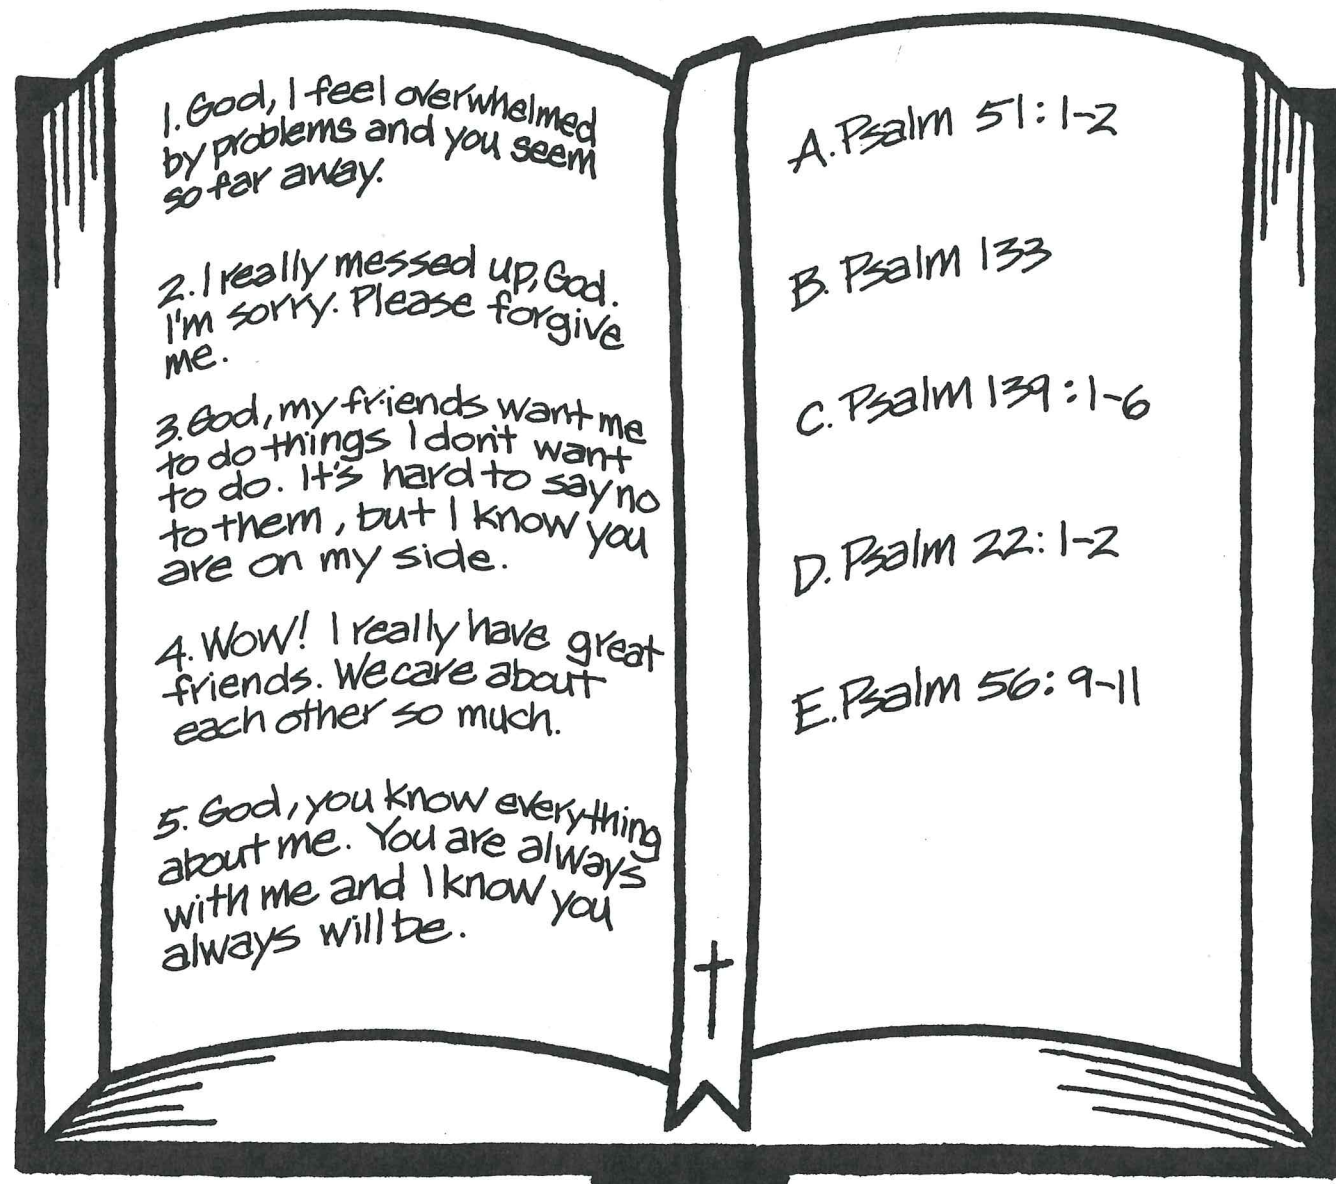 1. God, I feel overwhelmed
by problems and you seem
so far away.
2. I really messed up, God.
I'm sorry. Please forgive
me.
3. God, my friends want me
to do things I don't want
to do. It's hard to say no
to them, but I know you
are on my side.
4. Wow! I really have great
friends. We care about
each other so much.
5. God, you know everything
about me. You are always
with me and I know you
always will be.
A. Psalm 51:1-2
B. Psalm 133
C. Psalm 139:1-6
D. Psalm 22:1-2
E. Psalm 56:9-11